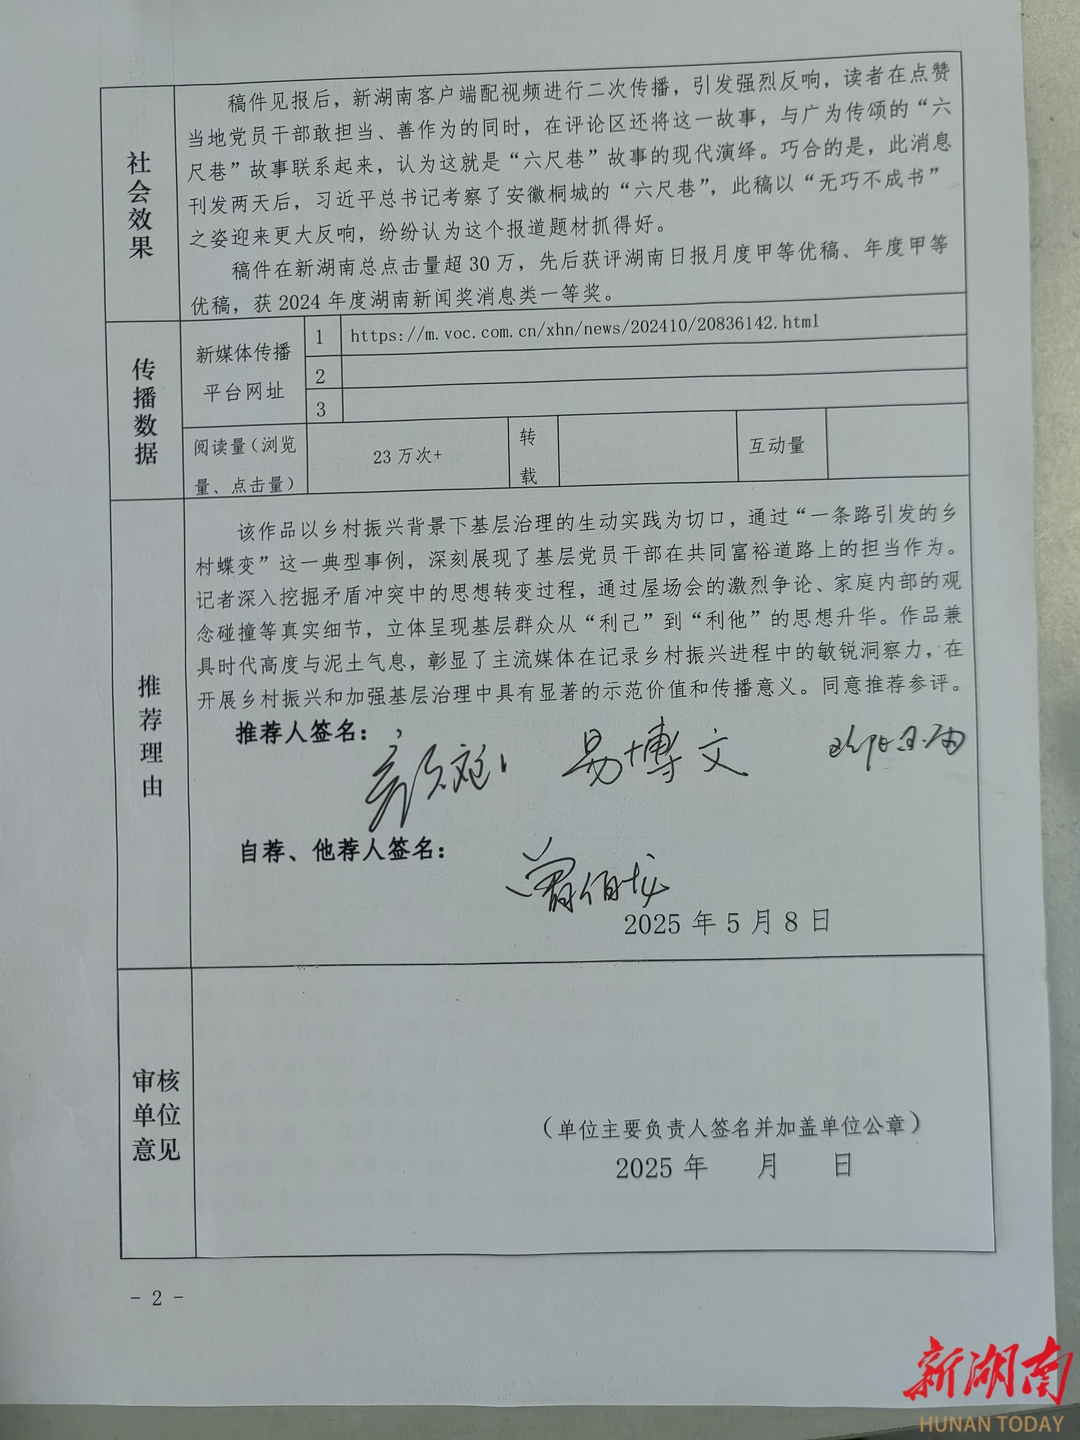 社会效果
稿件见报后，新湖南客户端配视频进行二次传播，引发强烈反响，读者在点赞
当地党员干部敢担当、善作为的同时，在评论区还将这一故事，与广为传颂的“六
尺巷”故事联系起来，认为这就是“六尺巷”故事的现代演绎。巧合的是，此消息
刊发两天后，习近平总书记考察了安徽桐城的“六尺巷”，此稿以“无巧不成书”
之姿迎来更大反响，纷纷认为这个报道题材抓得好。
稿件在新湖南总点击量超30万，先后获评湖南日报月度甲等优稿、年度甲等
优稿，获2024年度湖南新闻奖消息类一等奖。
传播数据
新媒体传播
平台网址
1 https://m.voc.com.cn/xhn/news/202410/20836142.html
2
3
阅读量（浏览
量、点击量）
23万次+
转
载
互动量
推荐理由
该作品以乡村振兴背景下基层治理的生动实践为切口，通过“一条路引发的乡
村蝶变”这一典型事例，深刻展现了基层党员干部在共同富裕道路上的担当作为。
记者深入挖掘矛盾冲突中的思想转变过程，通过屋场会的激烈争论、家庭内部的观
念碰撞等真实细节，立体呈现基层群众从“利己”到“利他”的思想升华。作品兼
具时代高度与泥土气息，彰显了主流媒体在记录乡村振兴进程中的敏锐洞察力，在
开展乡村振兴和加强基层治理中具有显著的示范价值和传播意义。同意推荐参评。
推荐人签名：
易博文
自荐、他荐人签名：
曾佰龙
2025年5月8日
审核
单位
意见
（单位主要负责人签名并加盖单位公章）
2025年 月 日
- 2 -
新湖南
HUNAN TODAY